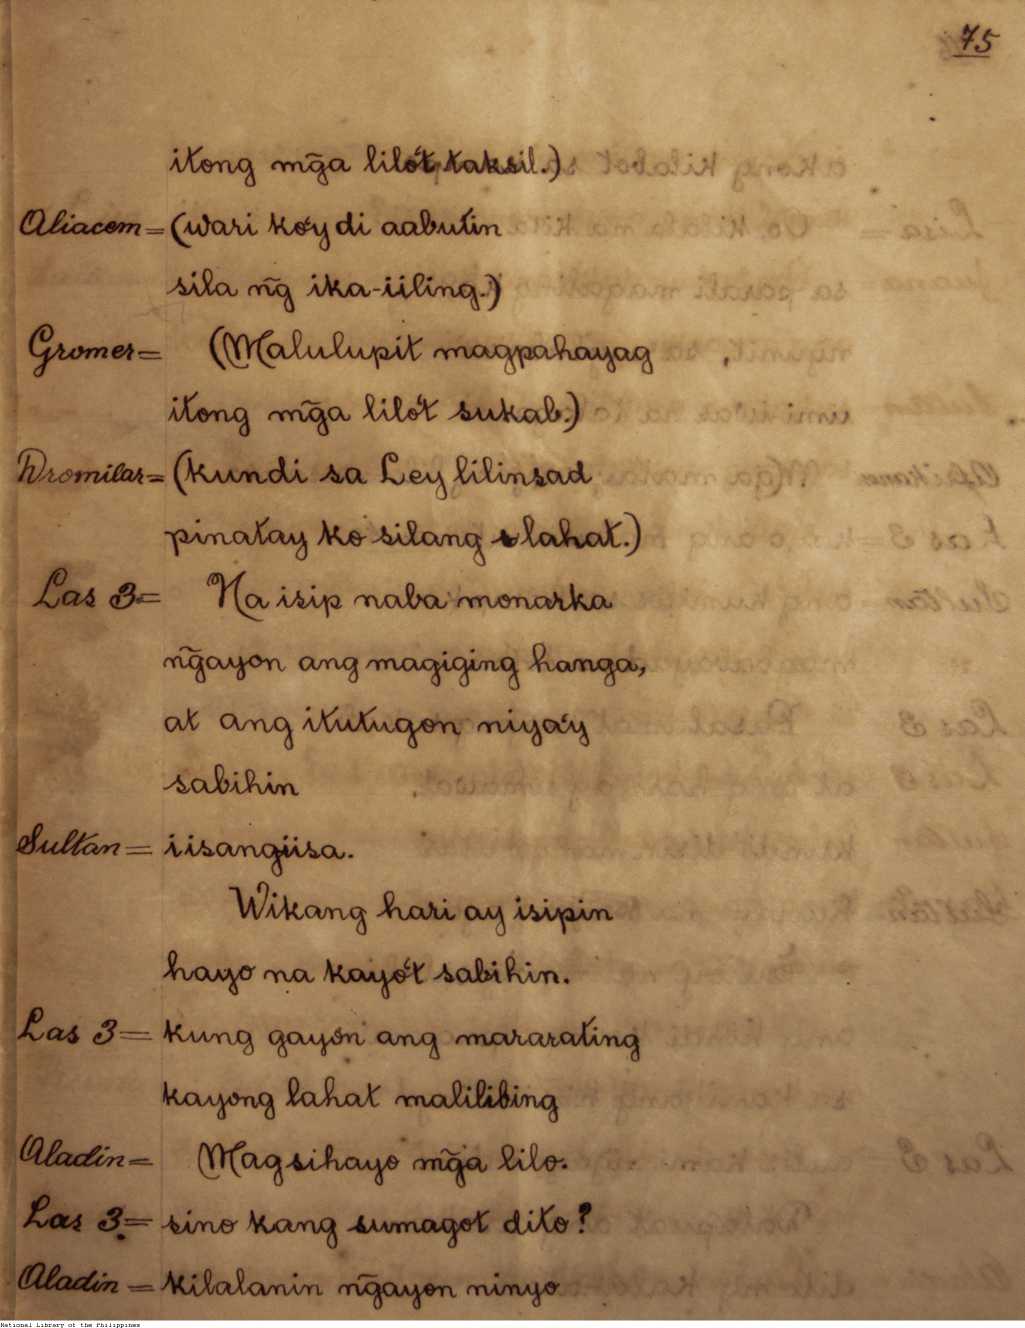 75
itong mg̃a lilo't taksil.)
Aliacem= (wari ko'y di aabutin
sila ng̃ ika-iiling.)
Gromer= (Malulupit magpahayag
itong mg̃a lilo't sukab.)
Dromilar= (kundi sa Ley lilinsad
pinatay ko silang lahat.)
Las 3.= Na isip naba monarka
ng̃ayon ang magiging hanga,
at ang itutugon niya'y
sabihin
Sultan= iisangiisa.
Wikang hari ay isipin
hayo na kayo't sabihin.
Las 3= kung gayon ang mararating
kayong lahat malilibing
Aladin= Magsihayo mg̃a lilo.
Las 3.= sino kang sumagot dito?
Aladin= kilalanin ng̃ayon ninyo
National Library of the Philippines